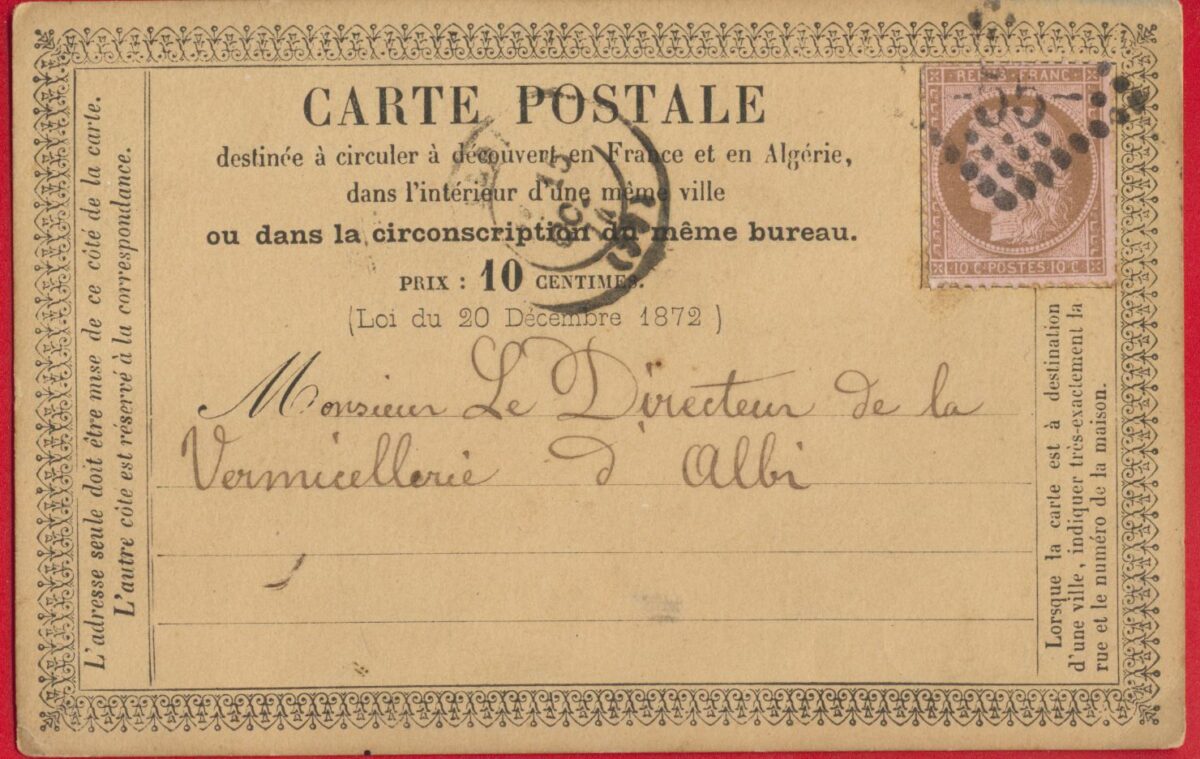 CARTE POSTALE
destinée à circuler à découvert en France et en Algérie,
dans l'intérieur d'une même ville
ou dans la circonscription du même bureau.
PRIX : 10 CENTIMES.
(Loi du 20 Décembre 1872)
Monsieur Le Directeur de la
Vermicellerie d'Albi
L'adresse seule doit être mise de ce côté de la carte.
L'autre côté est réservé à la correspondance.
Lorsque la carte est à destination
d'une ville, indiquer très-exactement la
rue et le numéro de la maison.
REPUB · FRANC ·
10 C · POSTES · 10 C
15
OCT
74